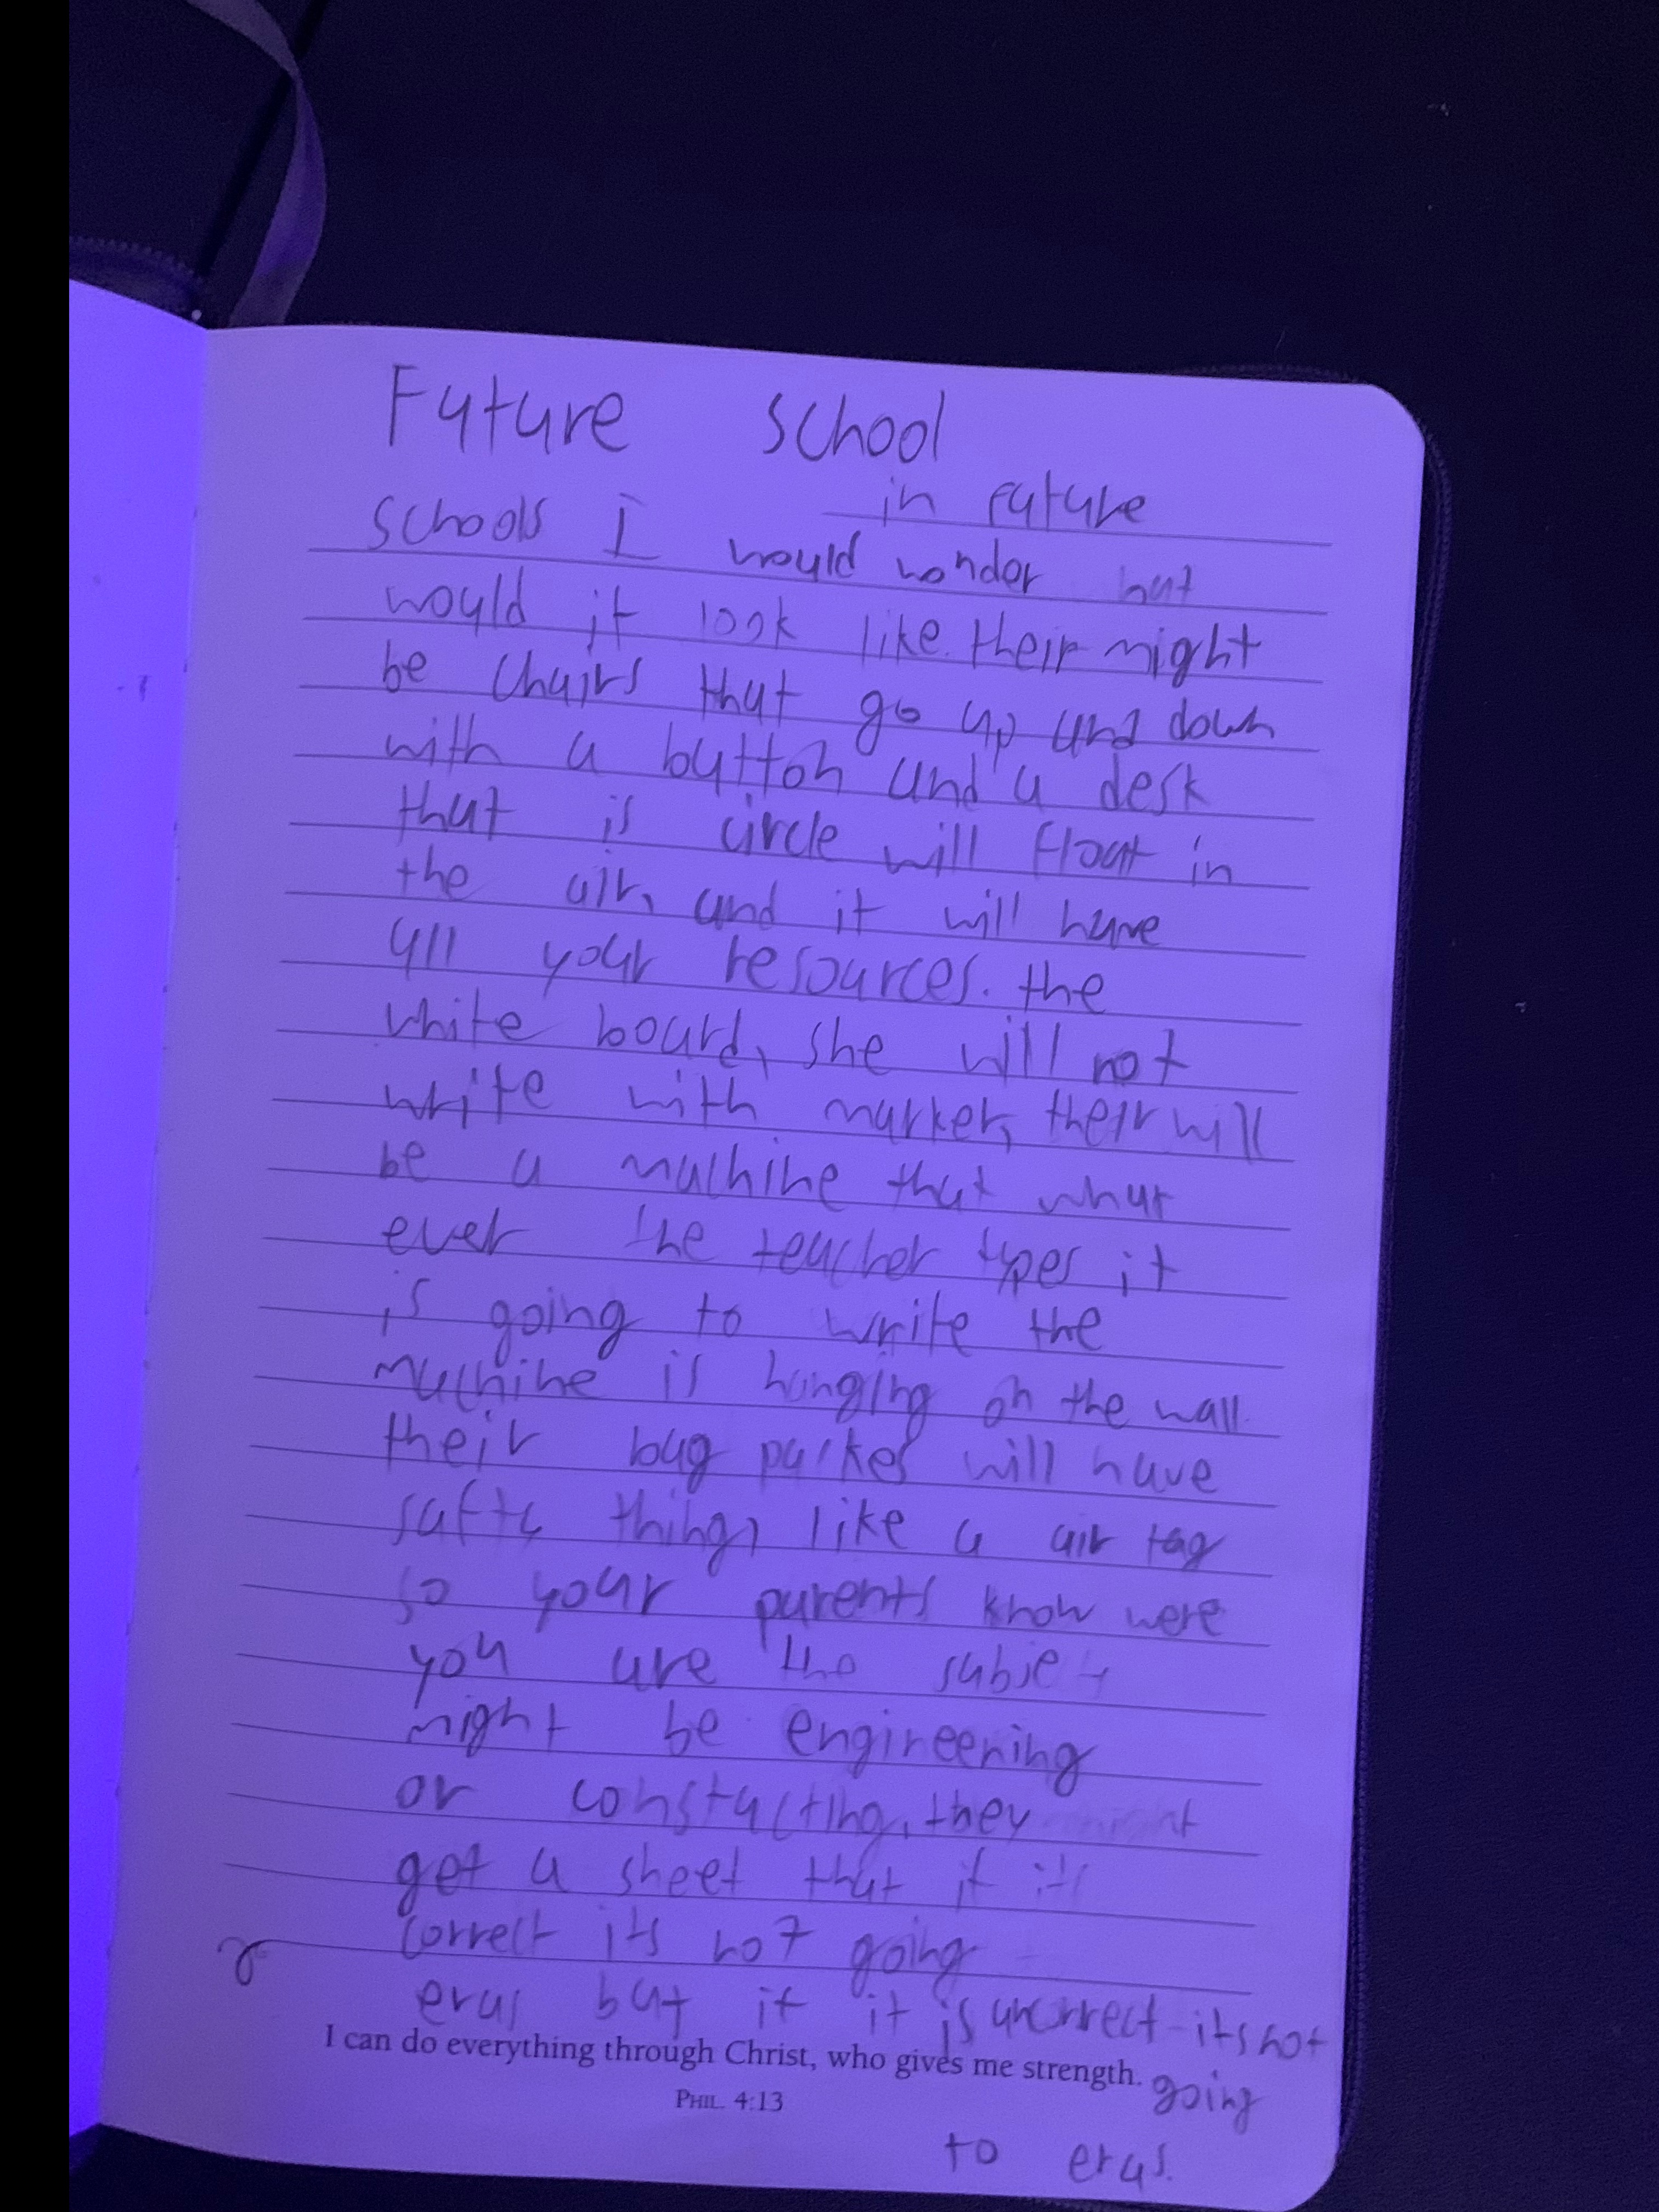 Future school
in future
schools I would wonder hat
would it look like. their might
be chairs that go up and down
with a button and a desk
that is circle will float in
the air, and it will have
all your resources. the
white board, she will not
write with marker, their will
be a machine that what
ever the teacher types it
is going to write the
machine is hanging on the wall.
their bag packes will have
safty things like a air tag
so your parents know were
you are the subject
might be engineering
or constacting, they might
get a sheet that if its
correct its not going
eras but if it is uncorrect its not
I can do everything through Christ, who gives me strength.
going
PHIL. 4:13
to eras.